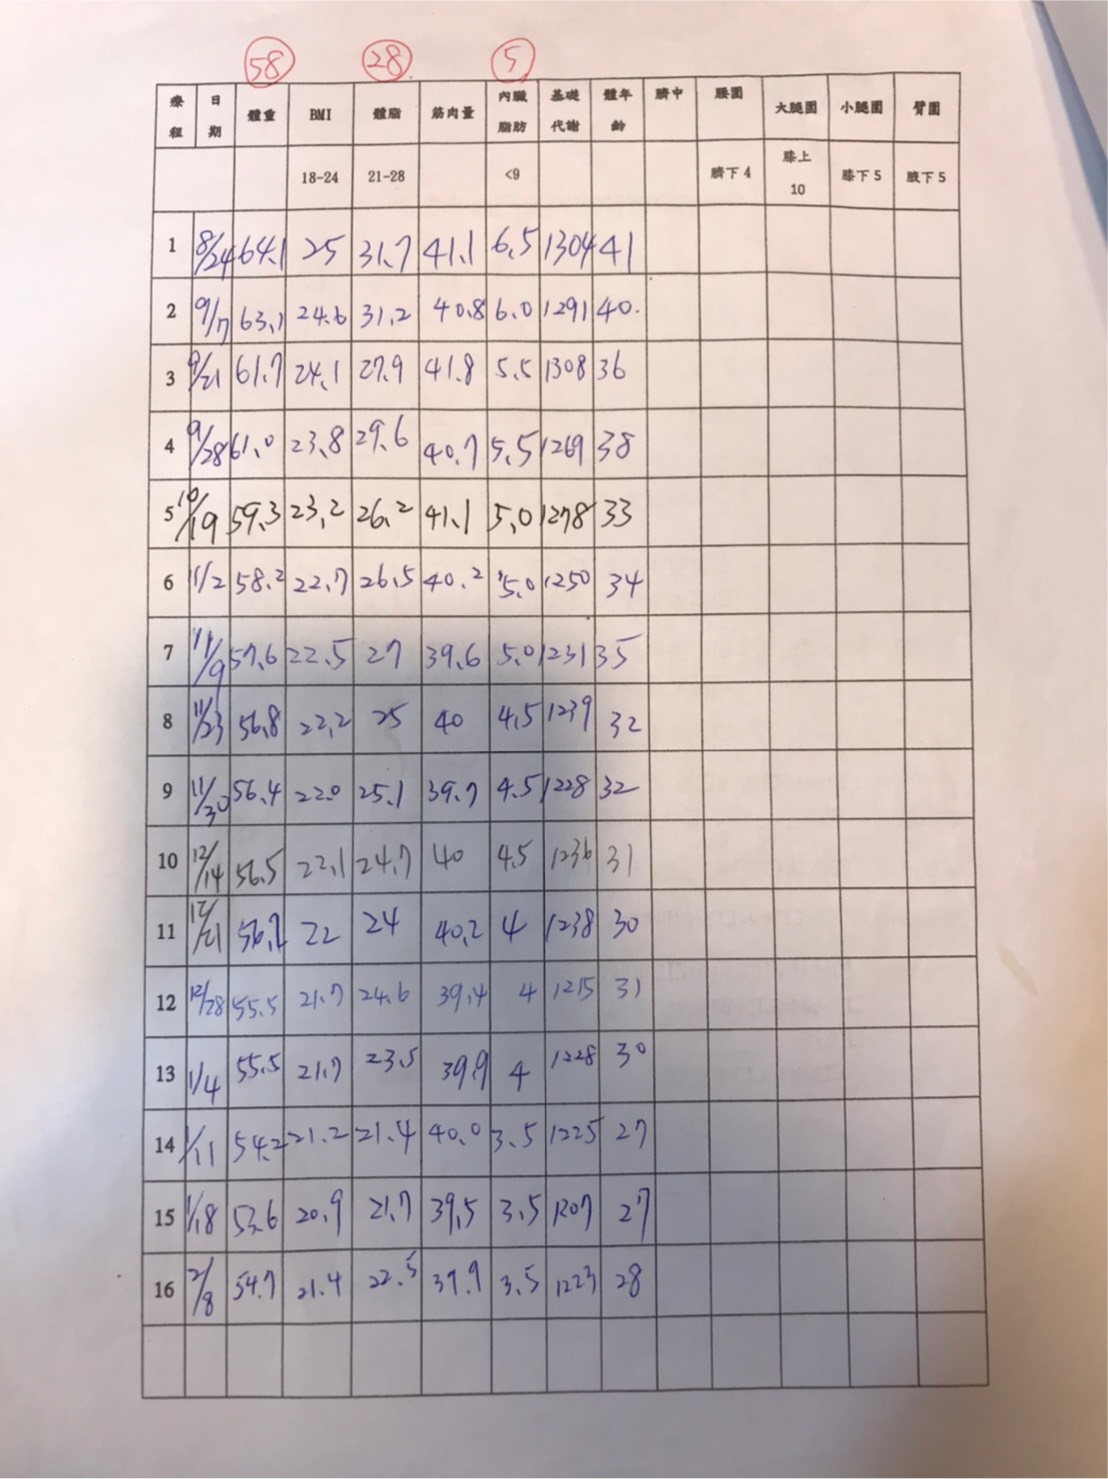 58 28 5
療程 日期 體重 BMI 體脂 筋肉量 內臟脂肪 基礎代謝 體年齡 臍中 腰圍 大腿圍 小腿圍 臂圍
18-24 21-28 <9 臍下4 膝上10 膝下5 腋下5
1 8/24 64.1 25 31.7 41.1 6.5 1304 41
2 9/7 63.1 24.6 31.2 40.8 6.0 1291 40.
3 9/21 61.7 24.1 27.9 41.8 5.5 1308 36
4 9/28 61.0 23.8 29.6 40.7 5.5 1269 38
5 10/19 59.3 23.2 26.2 41.1 5.0 1278 33
6 11/2 58.2 22.7 26.5 40.2 5.0 1250 34
7 11/9 57.6 22.5 27 39.6 5.0 1231 35
8 11/23 56.8 22.2 25 40 4.5 1239 32
9 11/30 56.4 22.0 25.1 39.7 4.5 1228 32
10 12/14 56.5 22.1 24.7 40 4.5 1236 31
11 12/21 22 24 40.2 4 1238 30
12 12/28 55.5 21.7 24.6 39.4 4 1215 31
13 1/4 55.5 21.7 23.5 39.9 4 1228 30
14 1/11 54.2 21.2 21.4 40.0 3.5 1225 27
15 1/18 53.6 20.9 21.7 39.5 3.5 1207 27
16 2/8 54.7 21.4 22.5 3.5 1223 28